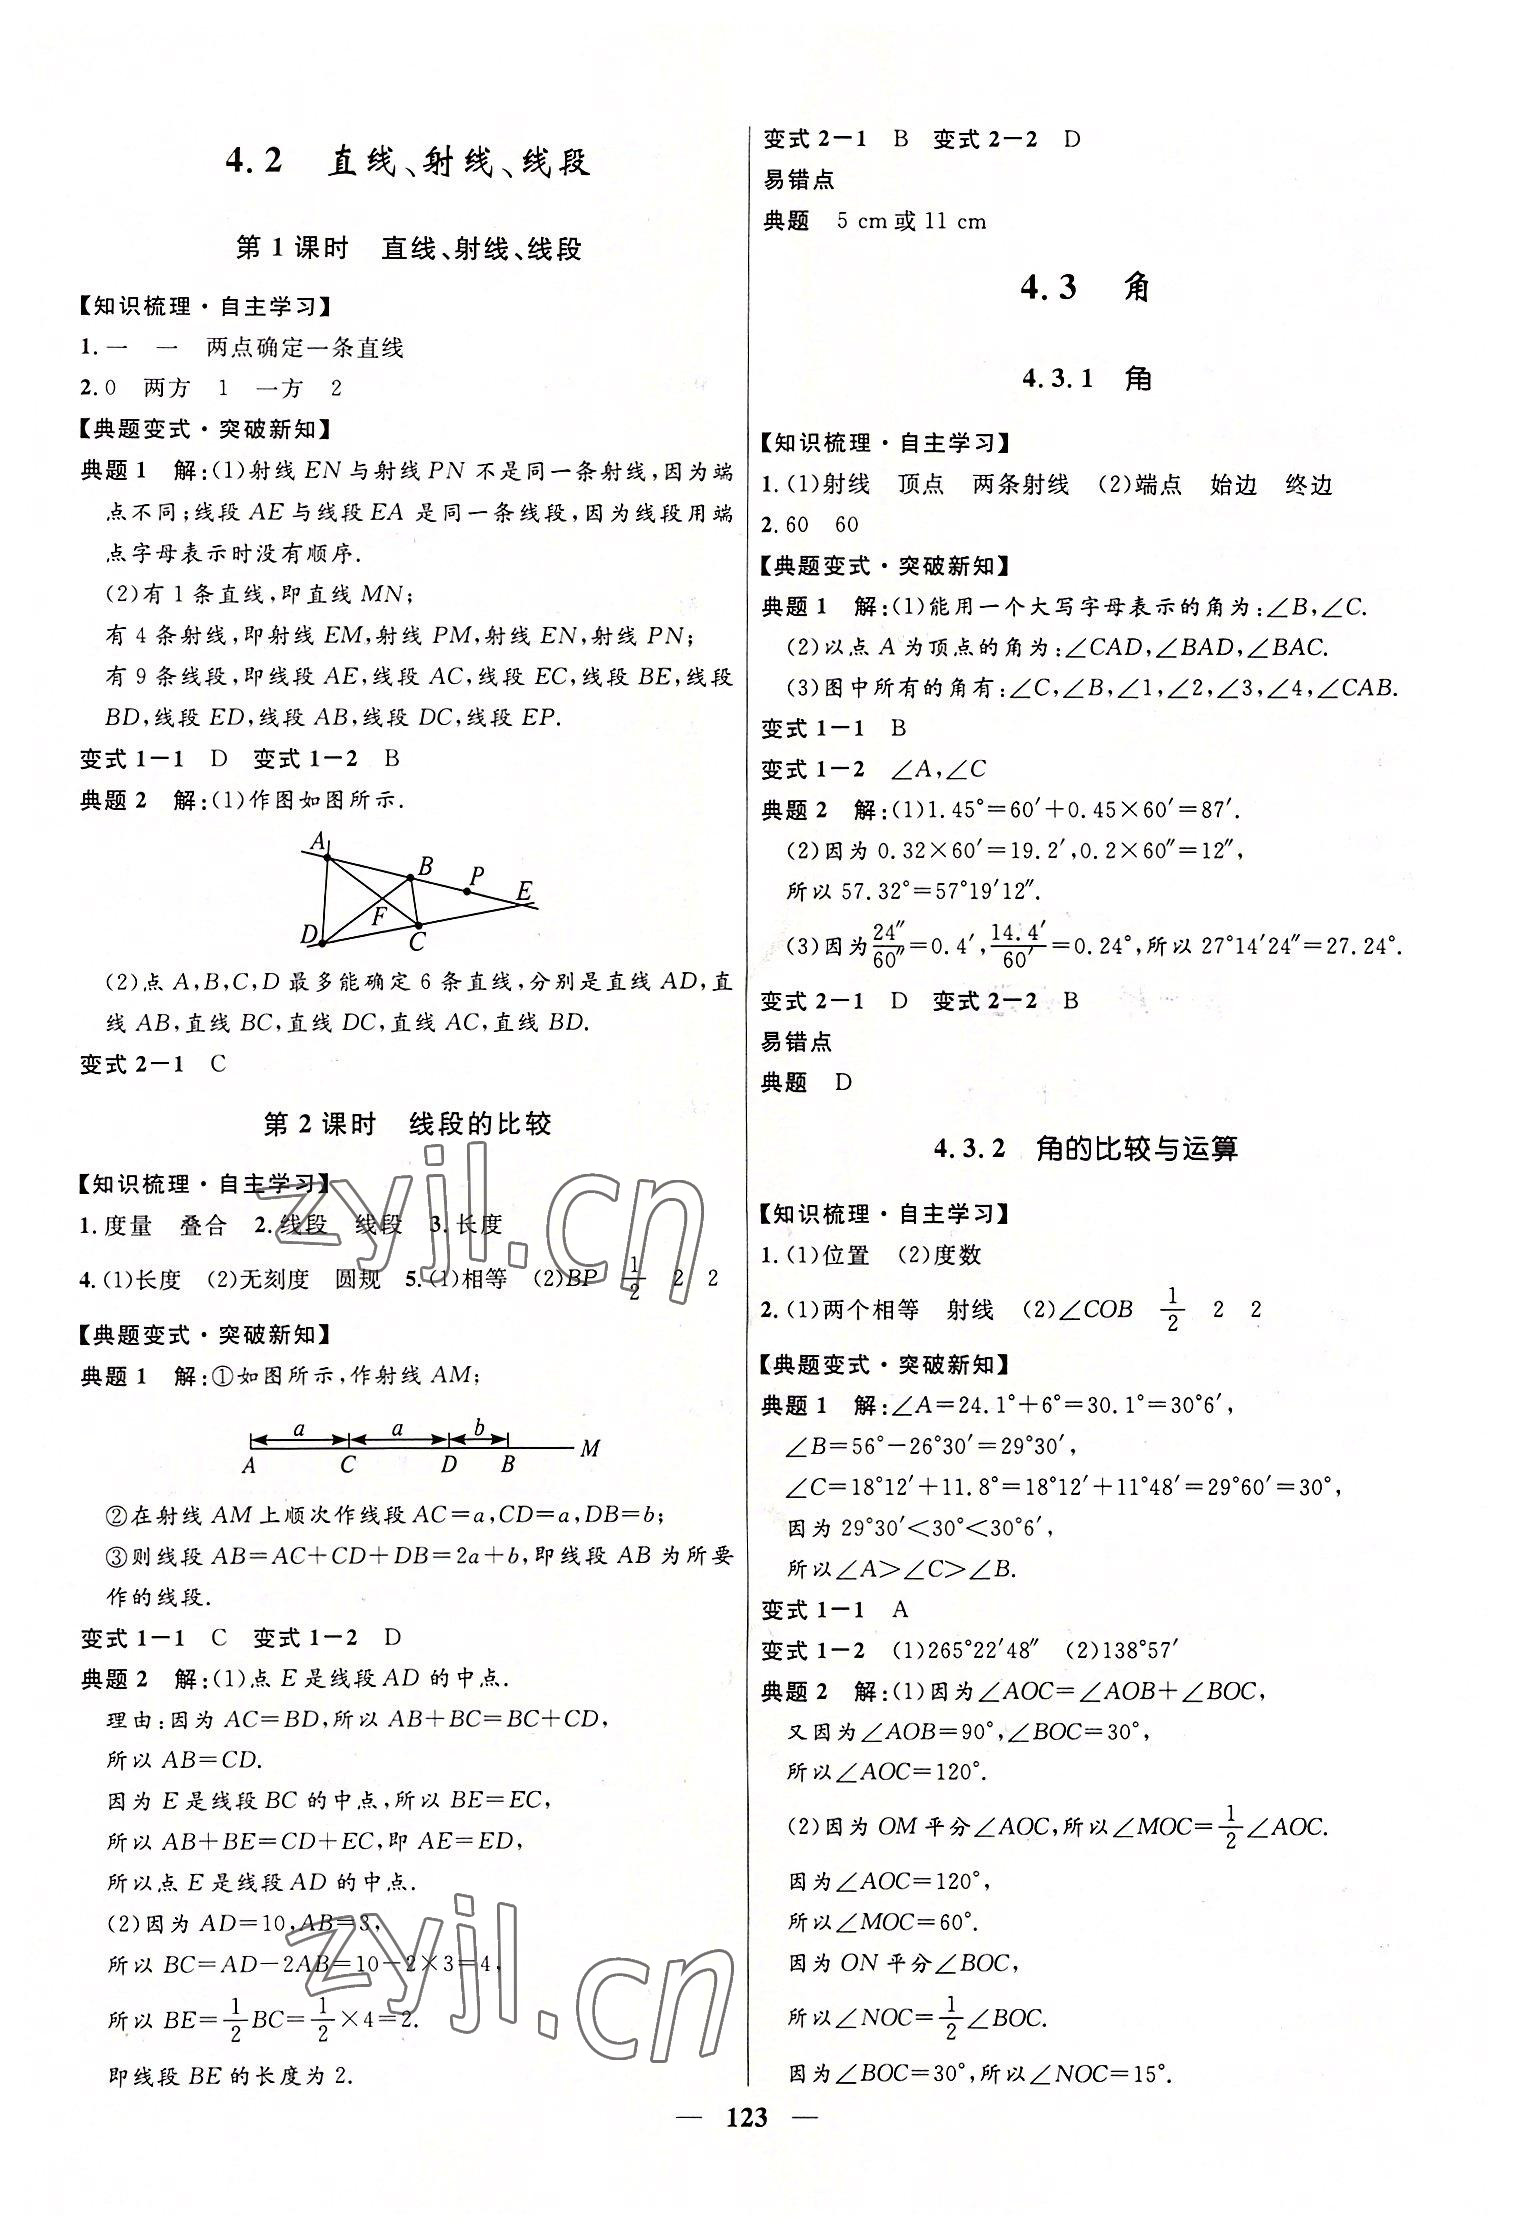 4.2 直线、射线、线段
第1课时 直线、射线、线段
【知识梳理·自主学习】
1.一 一 两点确定一条直线
2.0 两方 1 一方 2
【典题变式·突破新知】
典题1 解:(1)射线EN与射线PN不是同一条射线,因为端
点不同;线段AE与线段EA是同一条线段,因为线段用端
点字母表示时没有顺序.
(2)有1条直线,即直线MN;
有4条射线,即射线EM,射线PM,射线EN,射线PN;
有9条线段,即线段AE,线段AC,线段EC,线段BE,线段
BD,线段ED,线段AB,线段DC,线段EP.
变式1-1 D 变式1-2 B
典题2 解:(1)作图如图所示.
A
B
P
E
F
D
C
(2)点A,B,C,D最多能确定6条直线,分别是直线AD,直
线AB,直线BC,直线DC,直线AC,直线BD.
变式2-1 C
第2课时 线段的比较
【知识梳理·自主学习】
1.度量 叠合 2.线段 线段 3.长度
4.(1)长度 (2)无刻度 圆规 5.(1)相等 (2)BP 1/2 2 2
【典题变式·突破新知】
典题1 解:①如图所示,作射线AM;
a a b
A C D B M
②在射线AM上顺次作线段AC=a,CD=a,DB=b;
③则线段AB=AC+CD+DB=2a+b,即线段AB为所要
作的线段.
变式1-1 C 变式1-2 D
典题2 解:(1)点E是线段AD的中点.
理由:因为AC=BD,所以AB+BC=BC+CD,
所以AB=CD.
因为E是线段BC的中点,所以BE=EC,
所以AB+BE=CD+EC,即AE=ED,
所以点E是线段AD的中点.
(2)因为AD=10,AB=3,
所以BC=AD-2AB=10-2×3=4,
所以BE=1/2BC=1/2×4=2.
即线段BE的长度为2.
变式2-1 B 变式2-2 D
易错点
典题 5 cm或11 cm
4.3 角
4.3.1 角
【知识梳理·自主学习】
1.(1)射线 顶点 两条射线 (2)端点 始边 终边
2.60 60
【典题变式·突破新知】
典题1 解:(1)能用一个大写字母表示的角为:∠B,∠C.
(2)以点A为顶点的角为:∠CAD,∠BAD,∠BAC.
(3)图中所有的角有:∠C,∠B,∠1,∠2,∠3,∠4,∠CAB.
变式1-1 B
变式1-2 ∠A,∠C
典题2 解:(1)1.45°=60′+0.45×60′=87′.
(2)因为0.32×60′=19.2′,0.2×60″=12″,
所以57.32°=57°19′12″.
(3)因为24″/60″=0.4′,14.4′/60′=0.24°,所以27°14′24″=27.24°.
变式2-1 D 变式2-2 B
易错点
典题 D
4.3.2 角的比较与运算
【知识梳理·自主学习】
1.(1)位置 (2)度数
2.(1)两个相等 射线 (2)∠COB 1/2 2 2
【典题变式·突破新知】
典题1 解:∠A=24.1°+6°=30.1°=30°6′,
∠B=56°-26°30′=29°30′,
∠C=18°12′+11.8°=18°12′+11°48′=29°60′=30°,
因为29°30′<30°<30°6′,
所以∠A>∠C>∠B.
变式1-1 A
变式1-2 (1)265°22′48″ (2)138°57′
典题2 解:(1)因为∠AOC=∠AOB+∠BOC,
又因为∠AOB=90°,∠BOC=30°,
所以∠AOC=120°.
(2)因为OM平分∠AOC,所以∠MOC=1/2∠AOC.
因为∠AOC=120°,
所以∠MOC=60°.
因为ON平分∠BOC,
所以∠NOC=1/2∠BOC.
因为∠BOC=30°,所以∠NOC=15°.
— 123 —
zyjl.cn
zyjl.cn